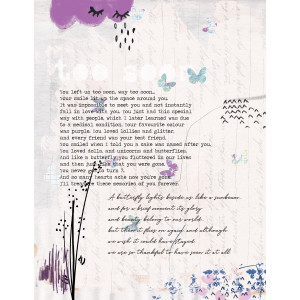 You left us too soon, way too soon.
Your smile lit up the space around you.
It was impossible to meet you and not instantly
fall in love with you. You just had this special
way with people, which I later learned was due
to a medical condition. Your favourite colour
was purple. You loved lollies and glitter
and every friend was your best friend.
You smiled when I told you a joke was named after you.
You loved dolls, and unicorns and butterflies.
And like a butterfly you fluttered in our lives
and then just like that you were gone.
You never got to turn
And so many hearts ache now you're gone.
I'll treasure these memories of you forever.
A butterfly lights beside us like a sunbeam.
and for a brief moment its glory
and beauty belong to our world.
but then it flies on again and although
we wish it could have stayed,
we are so thankful to have seen it at all